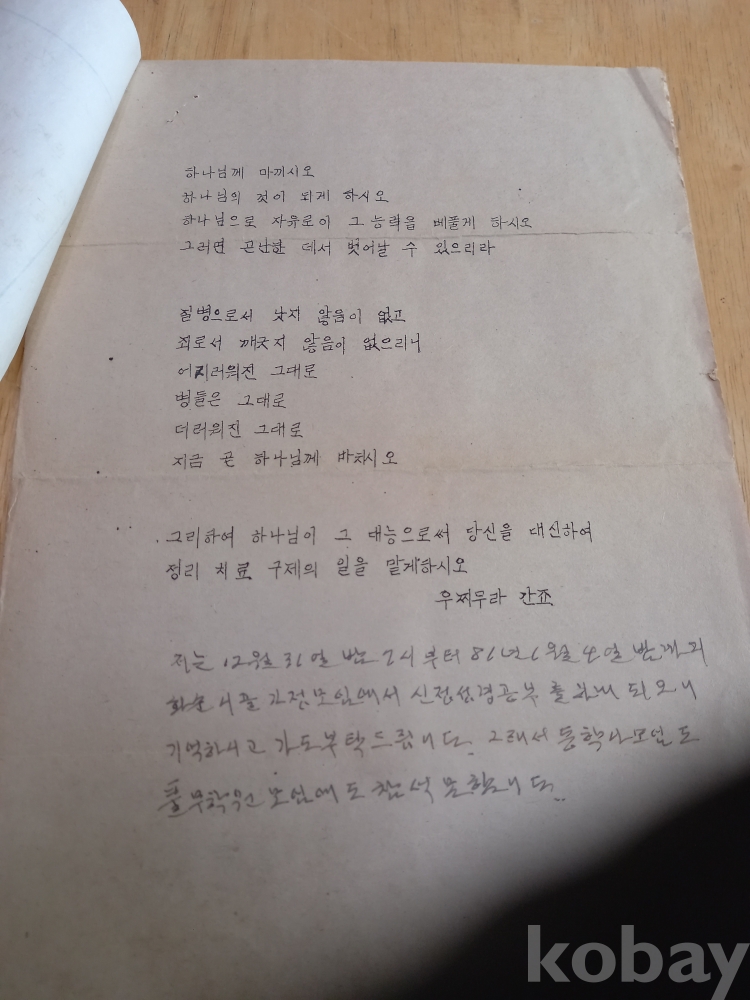 하나님께 마끼시오
하나님의 것이 되게 하시오
하나님으로 자유로이 그 능력을 베풀게 하시오
그러면 곤난한 데서 벗어날 수 있으리라
질병으로서 낫지 않음이 없고
죄로서 깨긋지 않음이 없으리니
어지러워진 그대로
병들은 그대로
더러워진 그대로
지금 곧 하나님께 바치시오
그리하여 하나님이 그 대능으로써 당신을 대신하여
정리 치료 구제의 일을 맡게하시오
우찌무라 간죠
저는 12월 31일 밤 7시 부터 81년 1월 4일 밤까지
가정모임에서 신정성경공부를 하게 되오니
기억하시고 기도부탁드립니다. 그래서
풀무학원 모임에도 참석 못합니다.
kobay